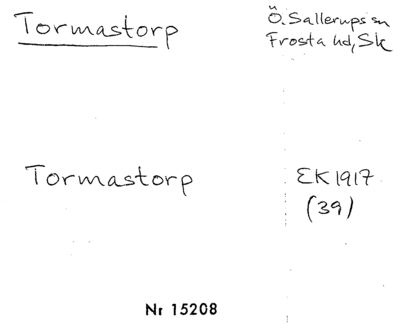 Tormastorp
Ö. Sallerups sn
Frosta hd, Sk
Tormastorp
EK 1917
(39)
Nr 15208